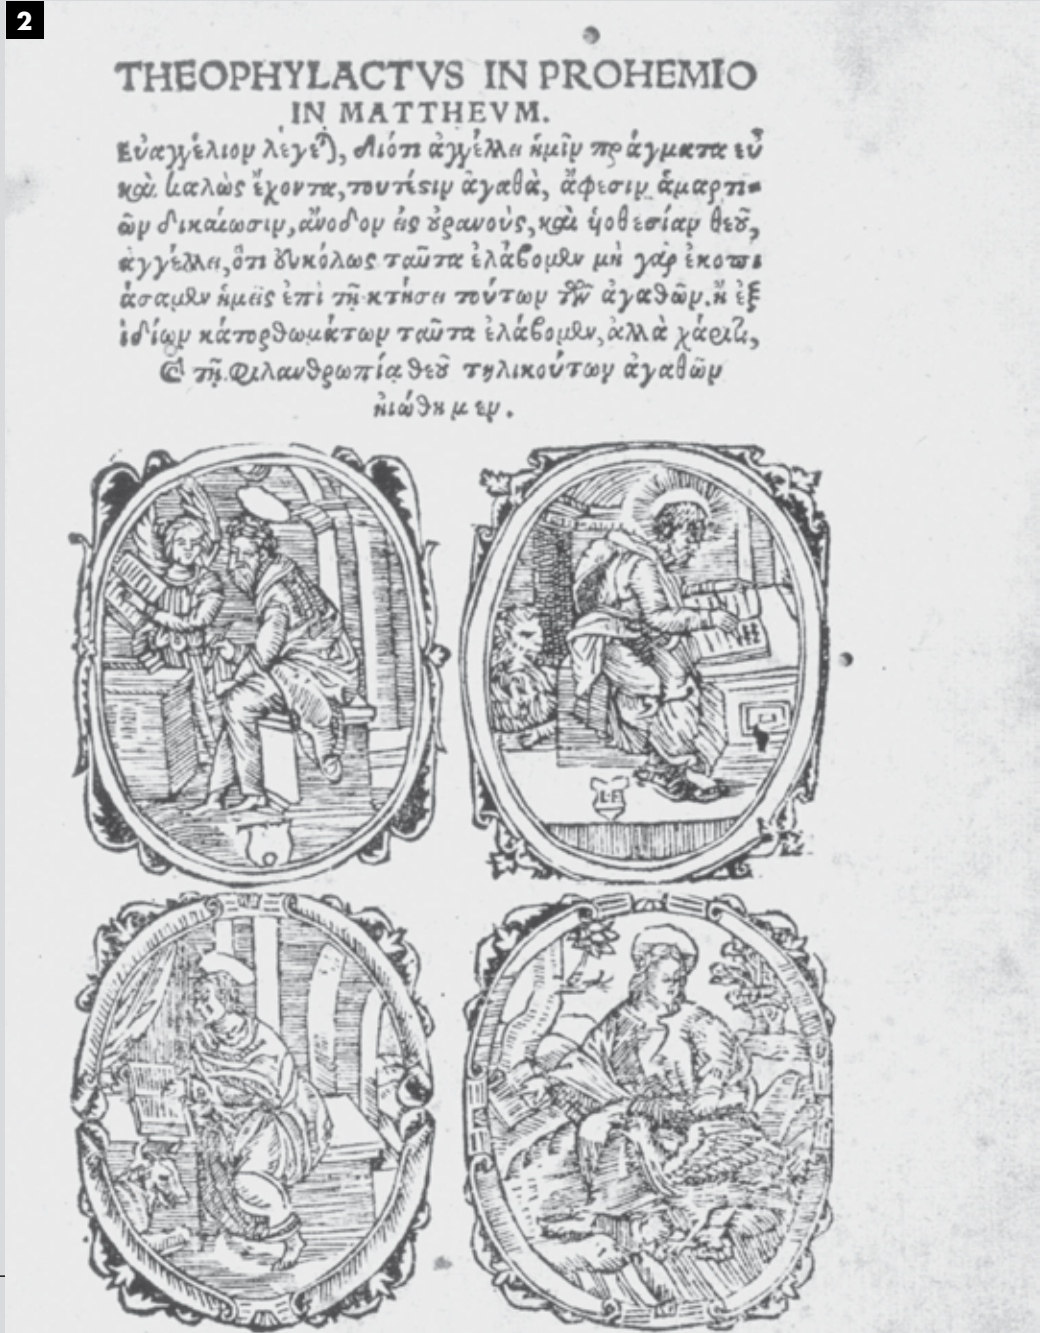 2
THEOPHYLACTVS IN PROHEMIO
IN MATTHEVM.
Εὐαγγέλιον λέγε), διότι ἀγγέλλει ἡμῖν πράγματα εὖ
καὶ καλὼς ἔχοντα, τουτέστιν ἀγαθὰ, ἄφεσιν ἁμαρτι-
ῶν δικαίωσιν, ἄνοδον εἰς οὐρανοὺς, καὶ ὑοθεσίαν θεοῦ,
ἀγγέλλει, ὅτι εὐκόλως ταῦτα ἐλάβομεν μὴ γάρ ἐκοπι
άσαμεν ἡμεῖς ἐπὶ τῇ κτήσει τούτων τῶν ἀγαθῶν. ἢ ἐξ
ἰδίων κάτορθωμάτων ταῦτα ἐλάβομεν, ἀλλὰ χάριτι,
τῇ φιλανθρωπίᾳ θεοῦ τηλικούτων ἀγαθῶν
ἠξιώθημεν.
L F